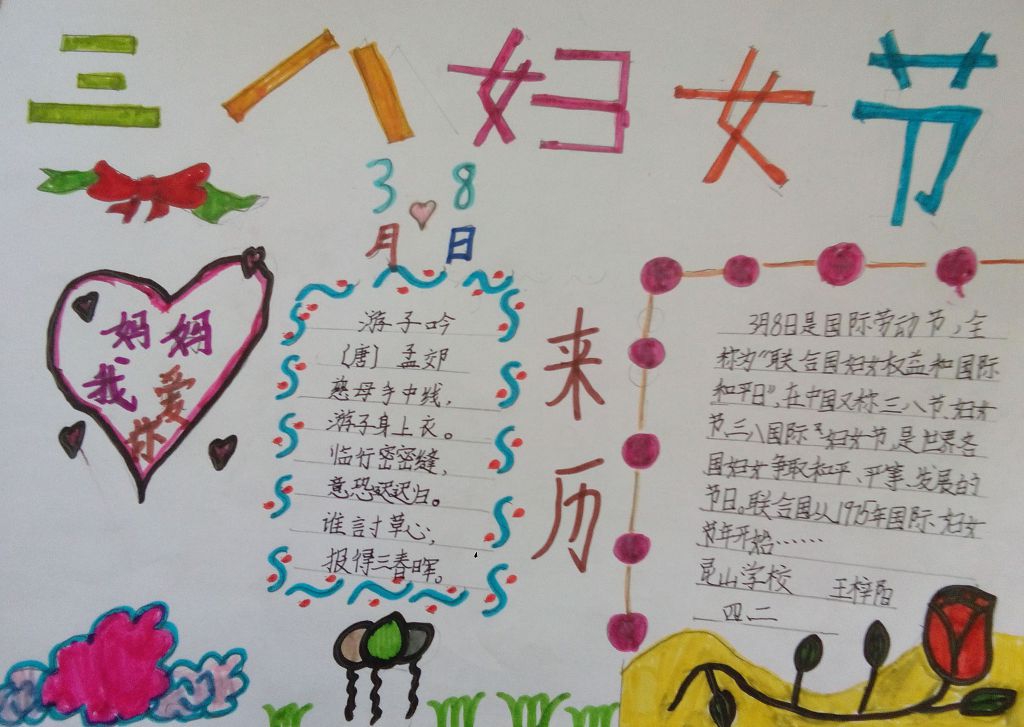 三八妇女节
3 8
月 日
妈妈
我爱
你
游子吟
(唐) 孟郊
慈母手中线,
游子身上衣。
临行密密缝,
意恐迟迟归。
谁討草心,
报得三春晖。
来历
3月8日是国际劳动节,全
称为“联合国妇女权益和国际
和平日”,在中国又称三八节、妇女
节、三八国际妇女节,是世界各
国妇女争取和平、平事、发展的
节日。联合国从1975年国际妇女
年开始……
昆山学校 王梓
四二